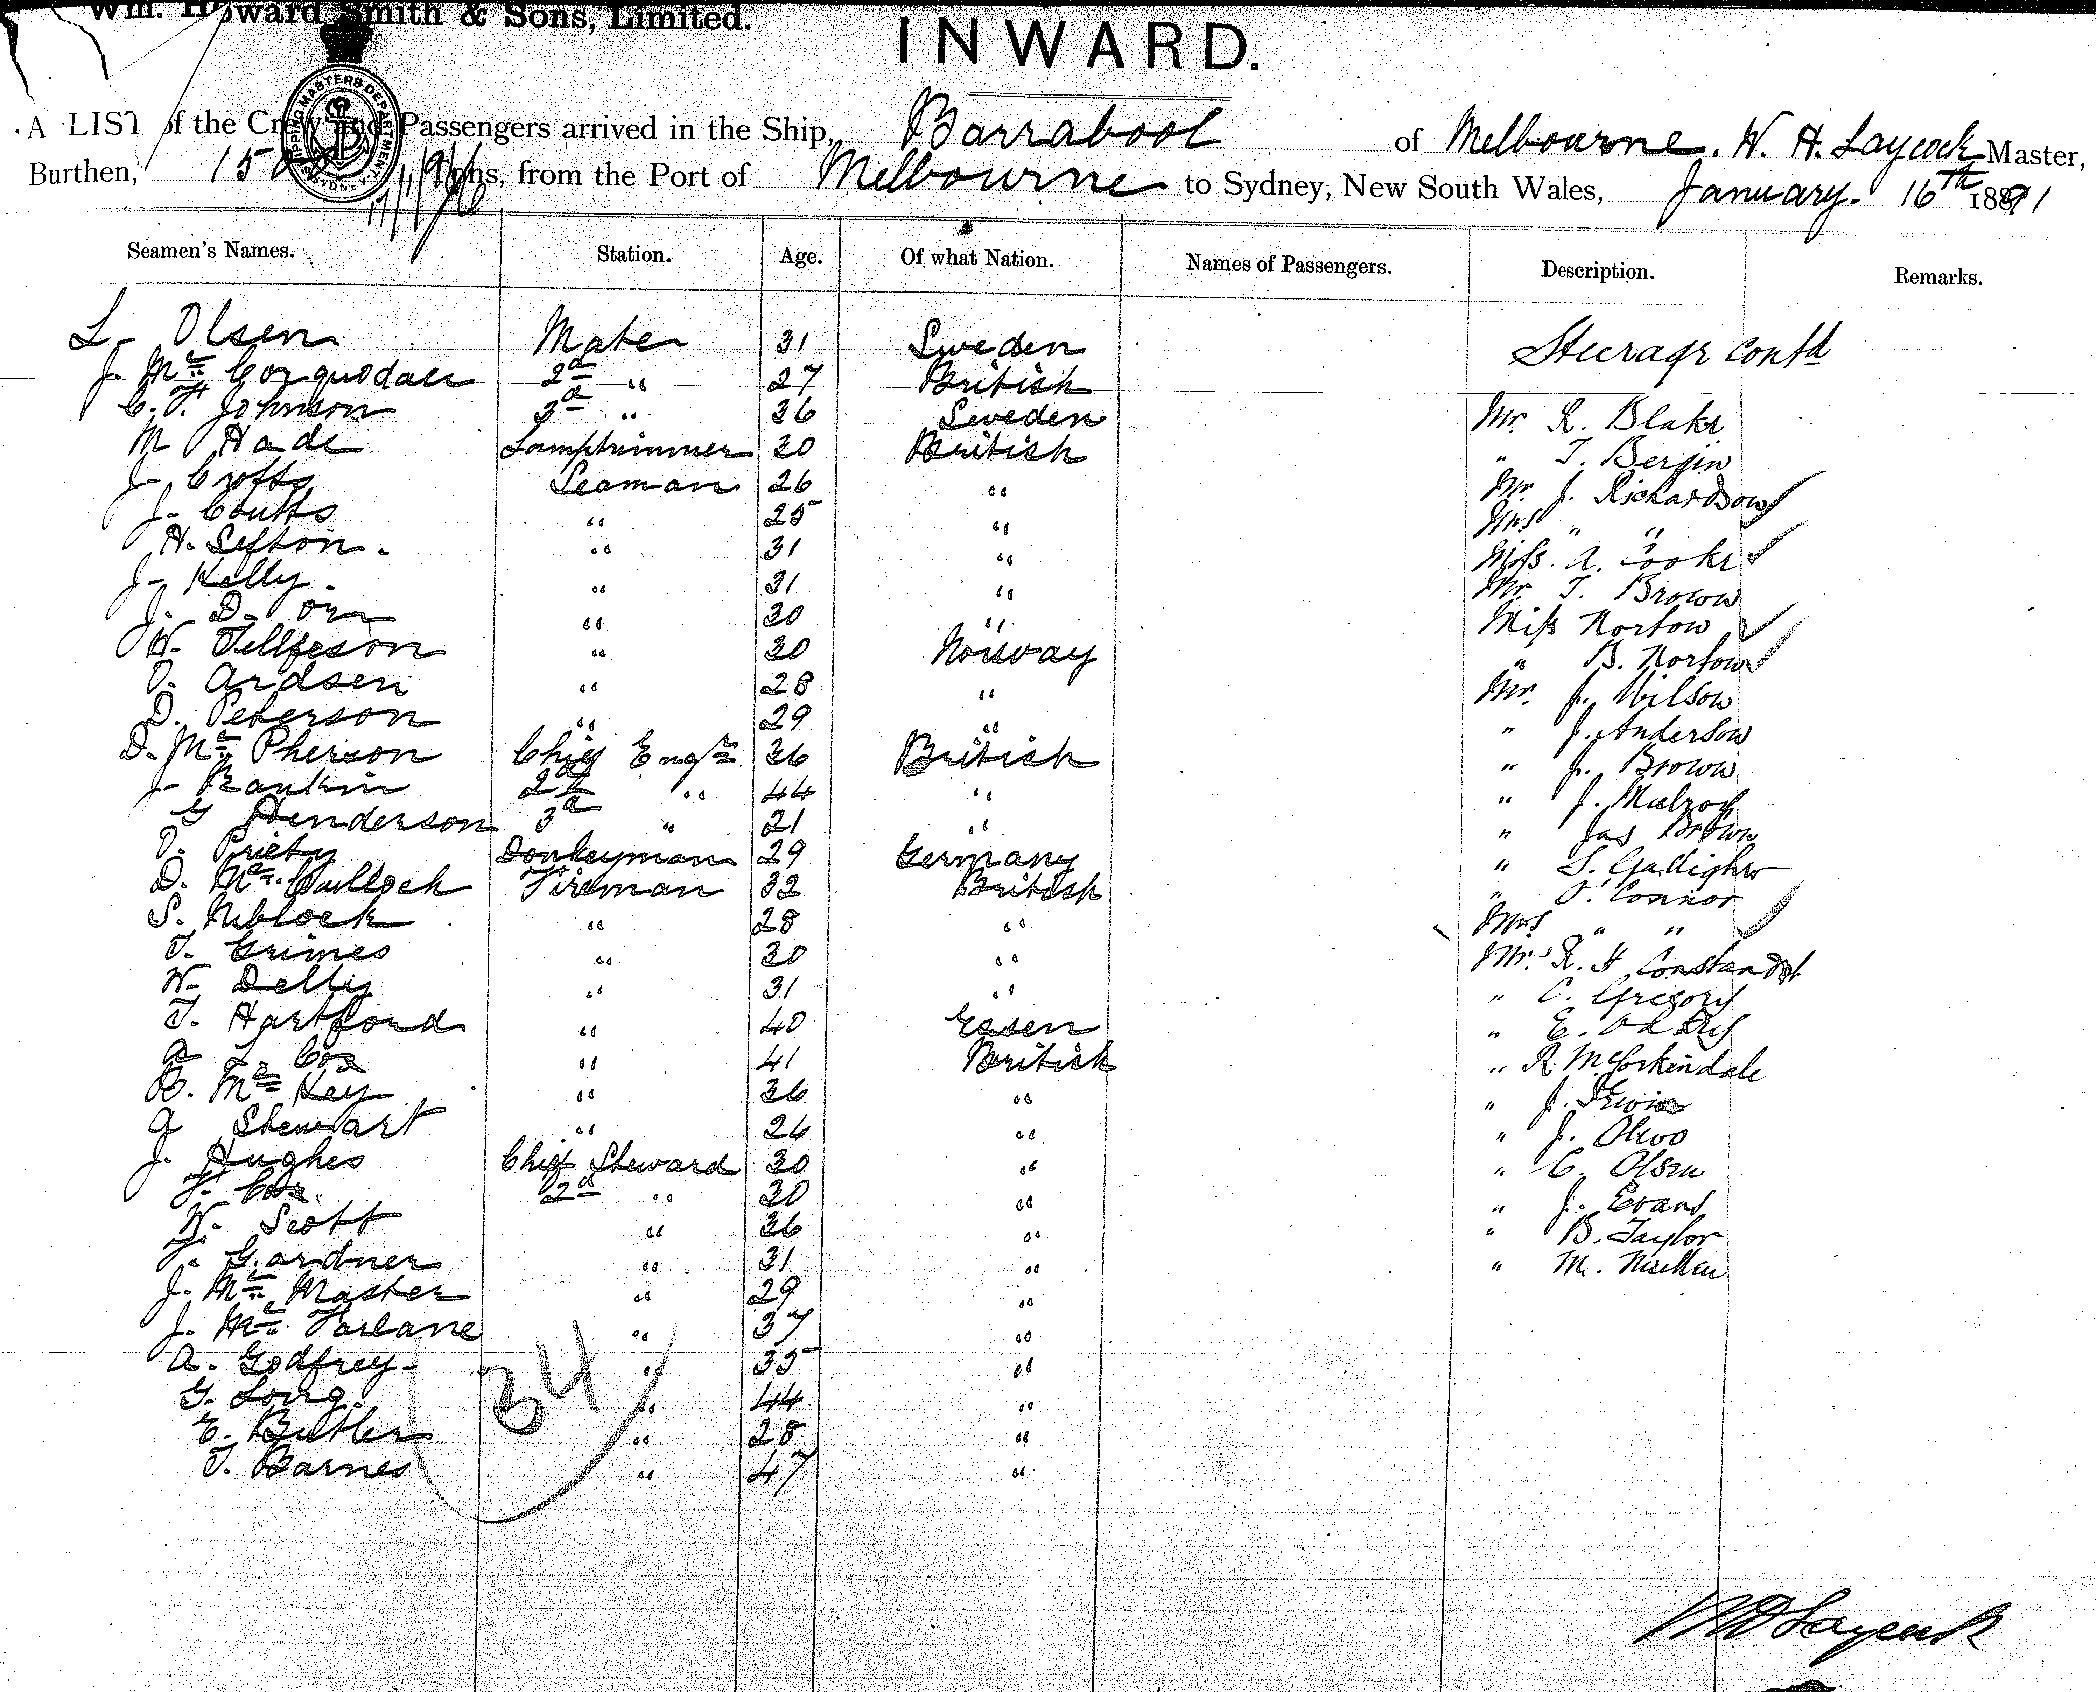 Wm. Howard Smith & Sons, Limited.
INWARD.
A LIST of the Crew and Passengers arrived in the Ship, Barrabool of Melbourne. W. H. Laycock Master,
Burthen, Tons, from the Port of Melbourne to Sydney, New South Wales, January. 16th 1891
Seamen's Names. Station. Age. Of what Nation. Names of Passengers. Description. Remarks.
L. Olsen Mate 31 Sweden
Steerage Contd
J. Mc Corquodale 2d " 27 British
C. F. Johnson 3d " 36 Sweden Mr. R. Blake
M Hade Lamptrimmer 30 British " T. Bergin
J. Crofts Seaman 26 " Mr J. Richardson
J. Coutts " 25 " Mrs " "
H. Sefton. " 31 " Miss. A. Cooke
J. Kelly. " 31 " Mr. T. Brown
J. D. Orr " 30 " Miss Norton
W. " 30 Norway " B. Norton
O. Ardsen " 28 " Mr. J. Wilson
D. Peterson " 29 " " J. Anderson
D. Mc Pherson Chief Engr 36 British " J. Brown
J. Rankin 2d " 44 " " J.
G Henderson 3d " 21 " " Jas Brown
Donkeyman 29 Germany " S. Galligher
D. Mc Culloch Fireman 32 British " O'Connor
S. Niblock " 28 " Mrs " "
T. Grimes " 30 " Mr. R. H
W. " 31 " " C. Gregory
T. Hartford " 40 Essen " E.
A. L. Cox " 41 British " R. McCorkindale
B. Mc Key " 36 " " J. Irwin
A Stewart " 26 " " J.
J. Hughes Chief Steward 30 " " C. Olsen
F. Cox. 2d " 30 " " J. Evans
W. Scott " 36 " " B. Taylor
F. Gardner " 31 " " M.
J. Mc Master " 29 "
J. Mc Farlane " 37 "
A. Godfrey " 35 "
G. Long. " 44 "
E. Butler " 28 "
T. Barnes " 47 "
34
W H Laycock